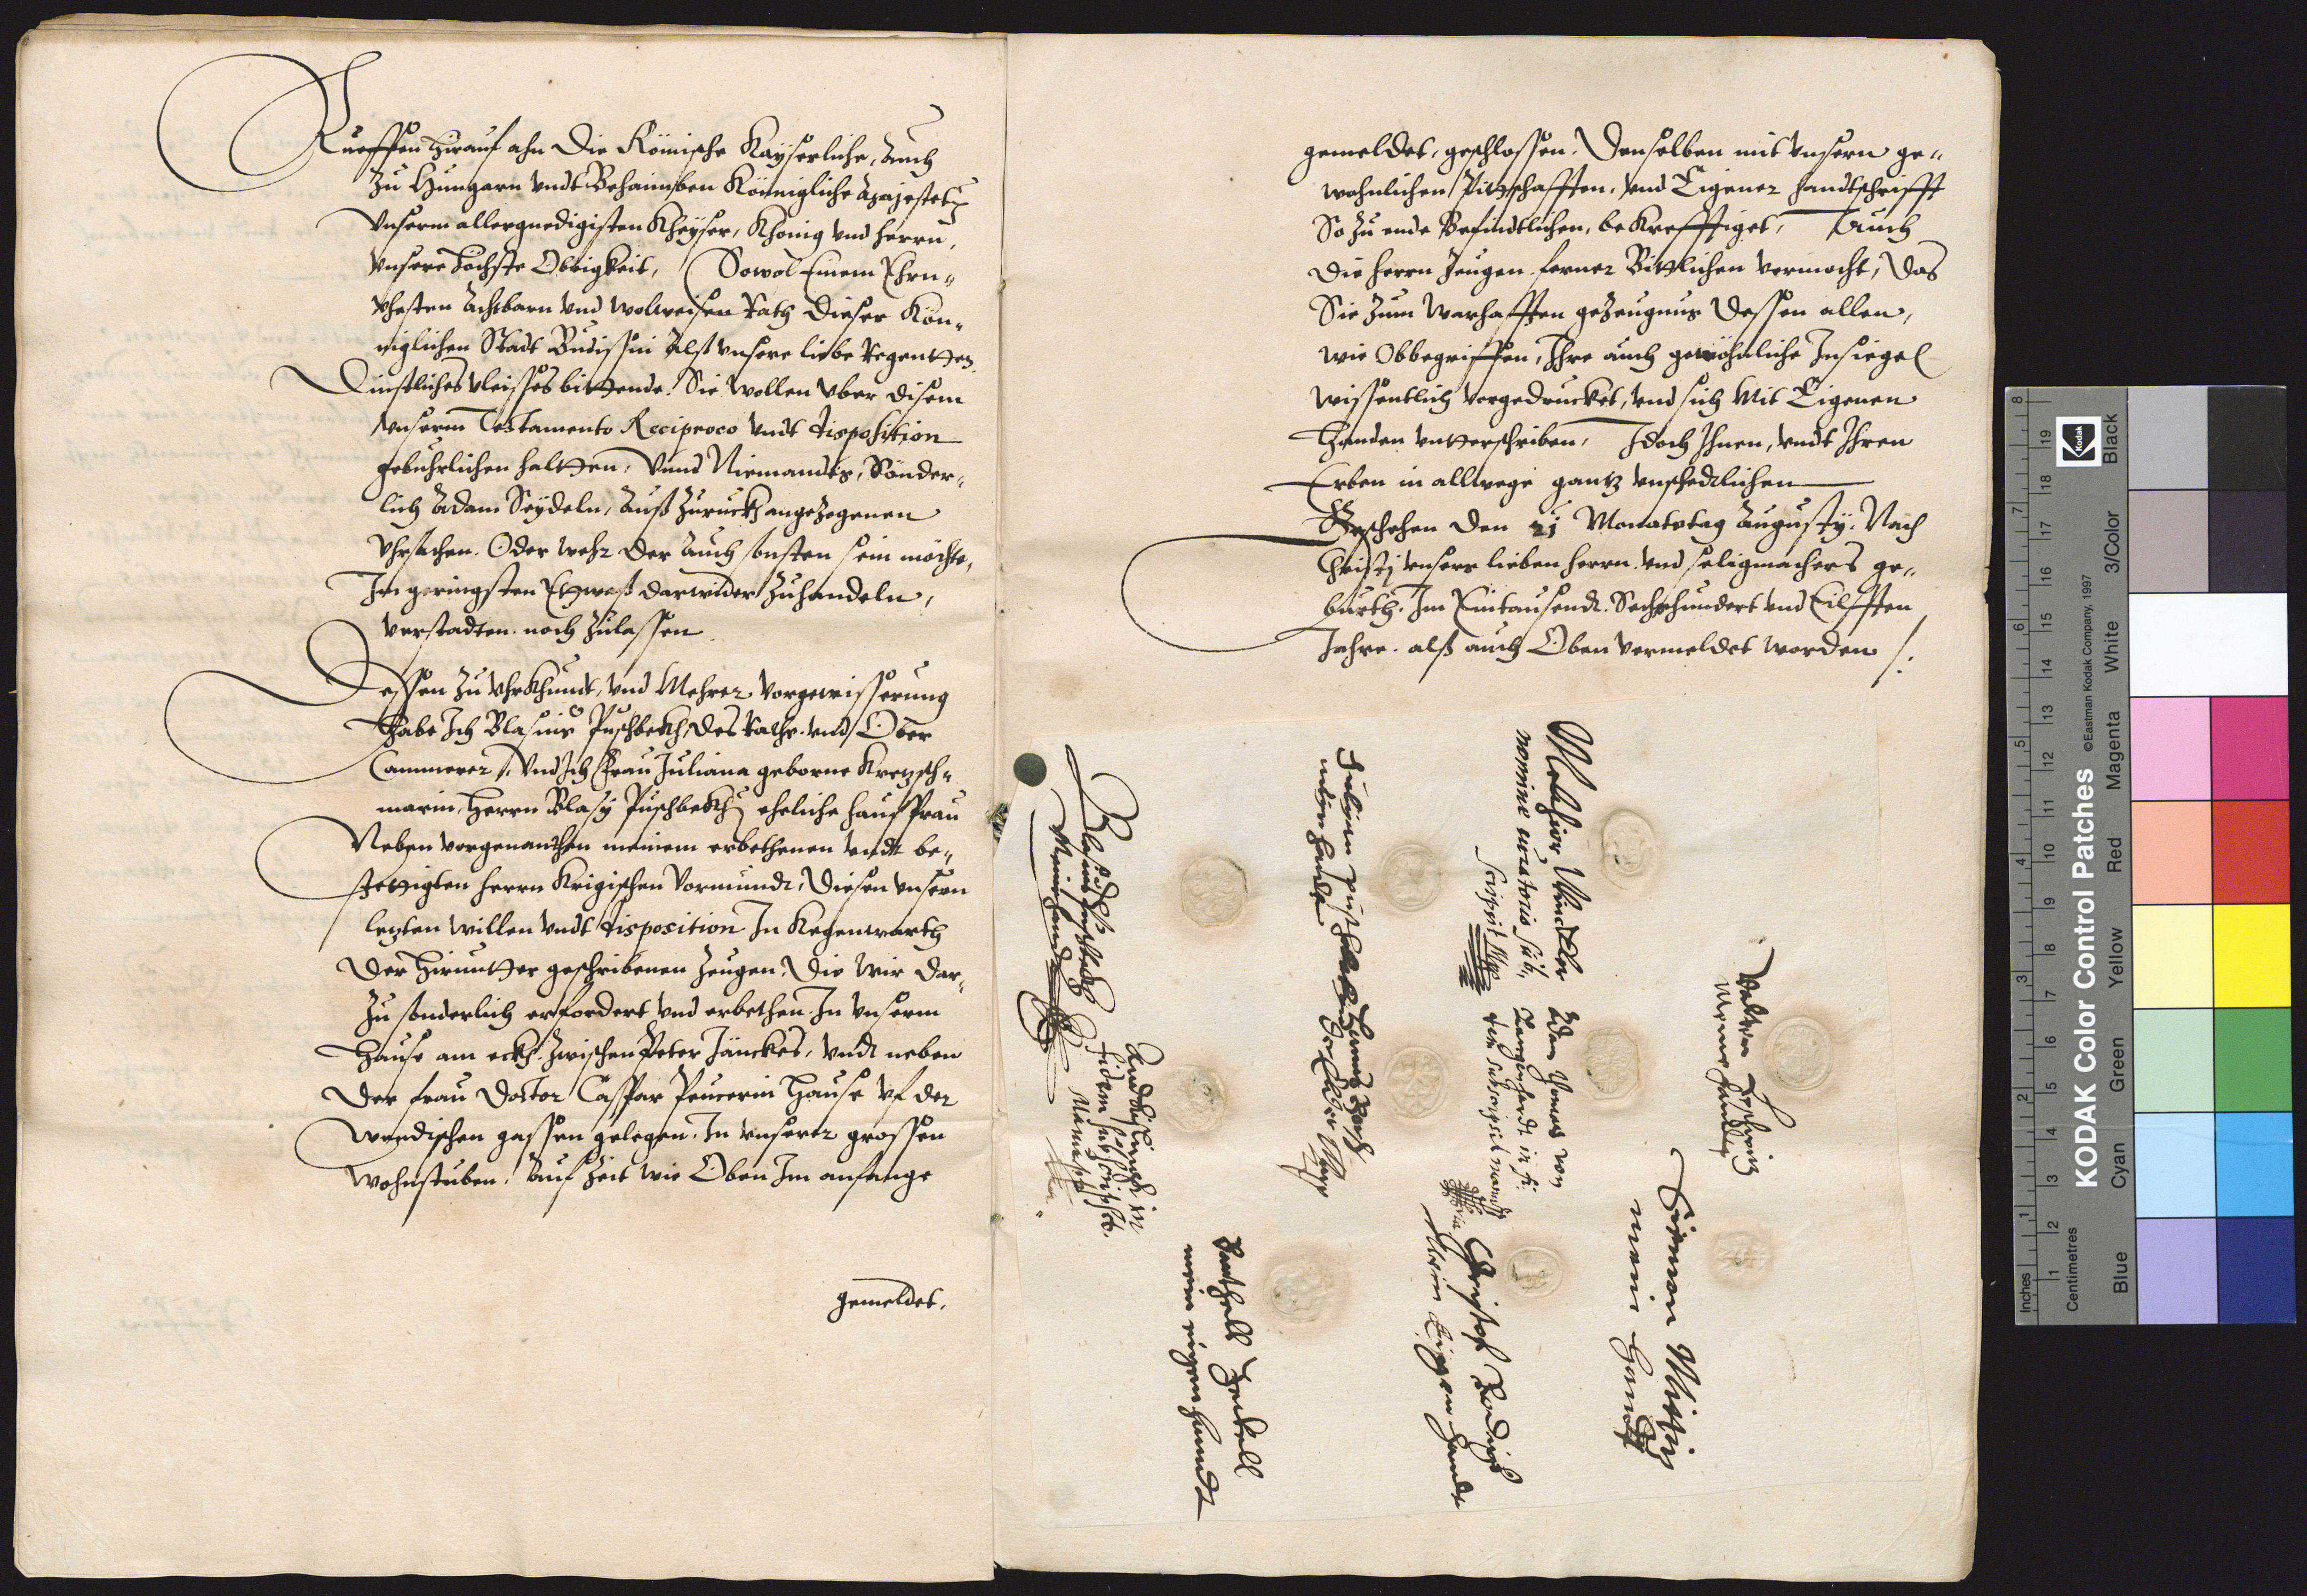 Rueffen hirauf ahn die Römische Kayserliche, Auch
Zu Hungarn vndt Behaimben Königliche Majestet
Vnserm allergnedigisten Kheyser, Khönig vnd herrn,
Vnsere höchste Obrigkeit, Sowol Einem Ehrn„
vhesten Achtbarn vnd wolweisen Rath dieser Kön„
niglichen Stadt Budissin Alß vnsere liebe Regentten
Dinstliches vleisses bittende. Sie wollen vber disem
vnserm Testamento Reciproco vndt disposition
gebuhrlichen haltten, Vnnd Niemandts, Sönder„
lich Adam Seydeln, Auß Zuruckh angezogenen
Vhrsachen. Oder wehr der Auch sonsten sein möchte,
Im geringsten Ettwaß darwider Zuhandeln,
verstadten noch Zulassen
Dessen zu vhrkhundt, vnd Mehrer Vorgewisserung
Habe Ich Blasius Puschbekh des Raths vnd Ober
Cammerer /. Vnd Ich Frau Juliana geborne Kretzsch„
marin, Herrn Blasy Puschbekhs eheliche hausfrau
Neben vorgenandten meinem erbethenen vndt be„
stettigten herrn Krigischen Vormundt, Diesen vnsern
letzten willen vndt disposition In Kegenwarth
der hirundter geschribenen Zeugen, die wir dar„
Zu sonderlich erfordert vnd erbethen In vnserm
Hause am eckh. Zwischen Peter Jänckes, vndt neben
der frau Doctor Casspar Peucerin Hause vf der
Wendischen gassen gelegen. In vnserer grossen
Wohnstuben. Auf Zeit wie Oben Im anfange
gemeldet.
gemeldet, geschlossen. Denselben mit vnsern ge„
wohnlichen Pitzschafften, vnd Eigener handtschrifft
So zu ende Befindtlichen, bekrefftiget, Auch
die herrn Zeugen ferner Bittlichen vermocht, das
Sie zum Warhafften gezeugnus dessen allen,
wie Obbegriffen, Ihre auch gewöhnliche Insiegel
wissentlich vorgedrucket, vnd sich Mit Eigenen
Handen vntterschriben, Idoch Ihnen, vndt Ihren
Erben in allwege gantz vnschedlichen
Geschehen den 21 Monatstag Augusty. Nach
Christj vnsers lieben herrn vnd seligmachers ge„
burth. Im Eintausendt Sechshundert vnd Eilfften
Jahre. alß auch Oben vermeldet worden /.
Blasius Puschbekh
Mein handt
Juliana Puschbekhin
mein handt
Melchior Winckler
nomine curatoris sub„
scripsit Mpp
Simon Mittig
mein handt
Christof Rodigk
Mein Eigen handt
Barthell Heidell
mein eigen handt
KODAK Color Control Patches
©Eastman Kodak Company, 1997
Kodak
Inches
Centimetres
Blue Cyan Green Yellow Red Magenta White 3/Color Black